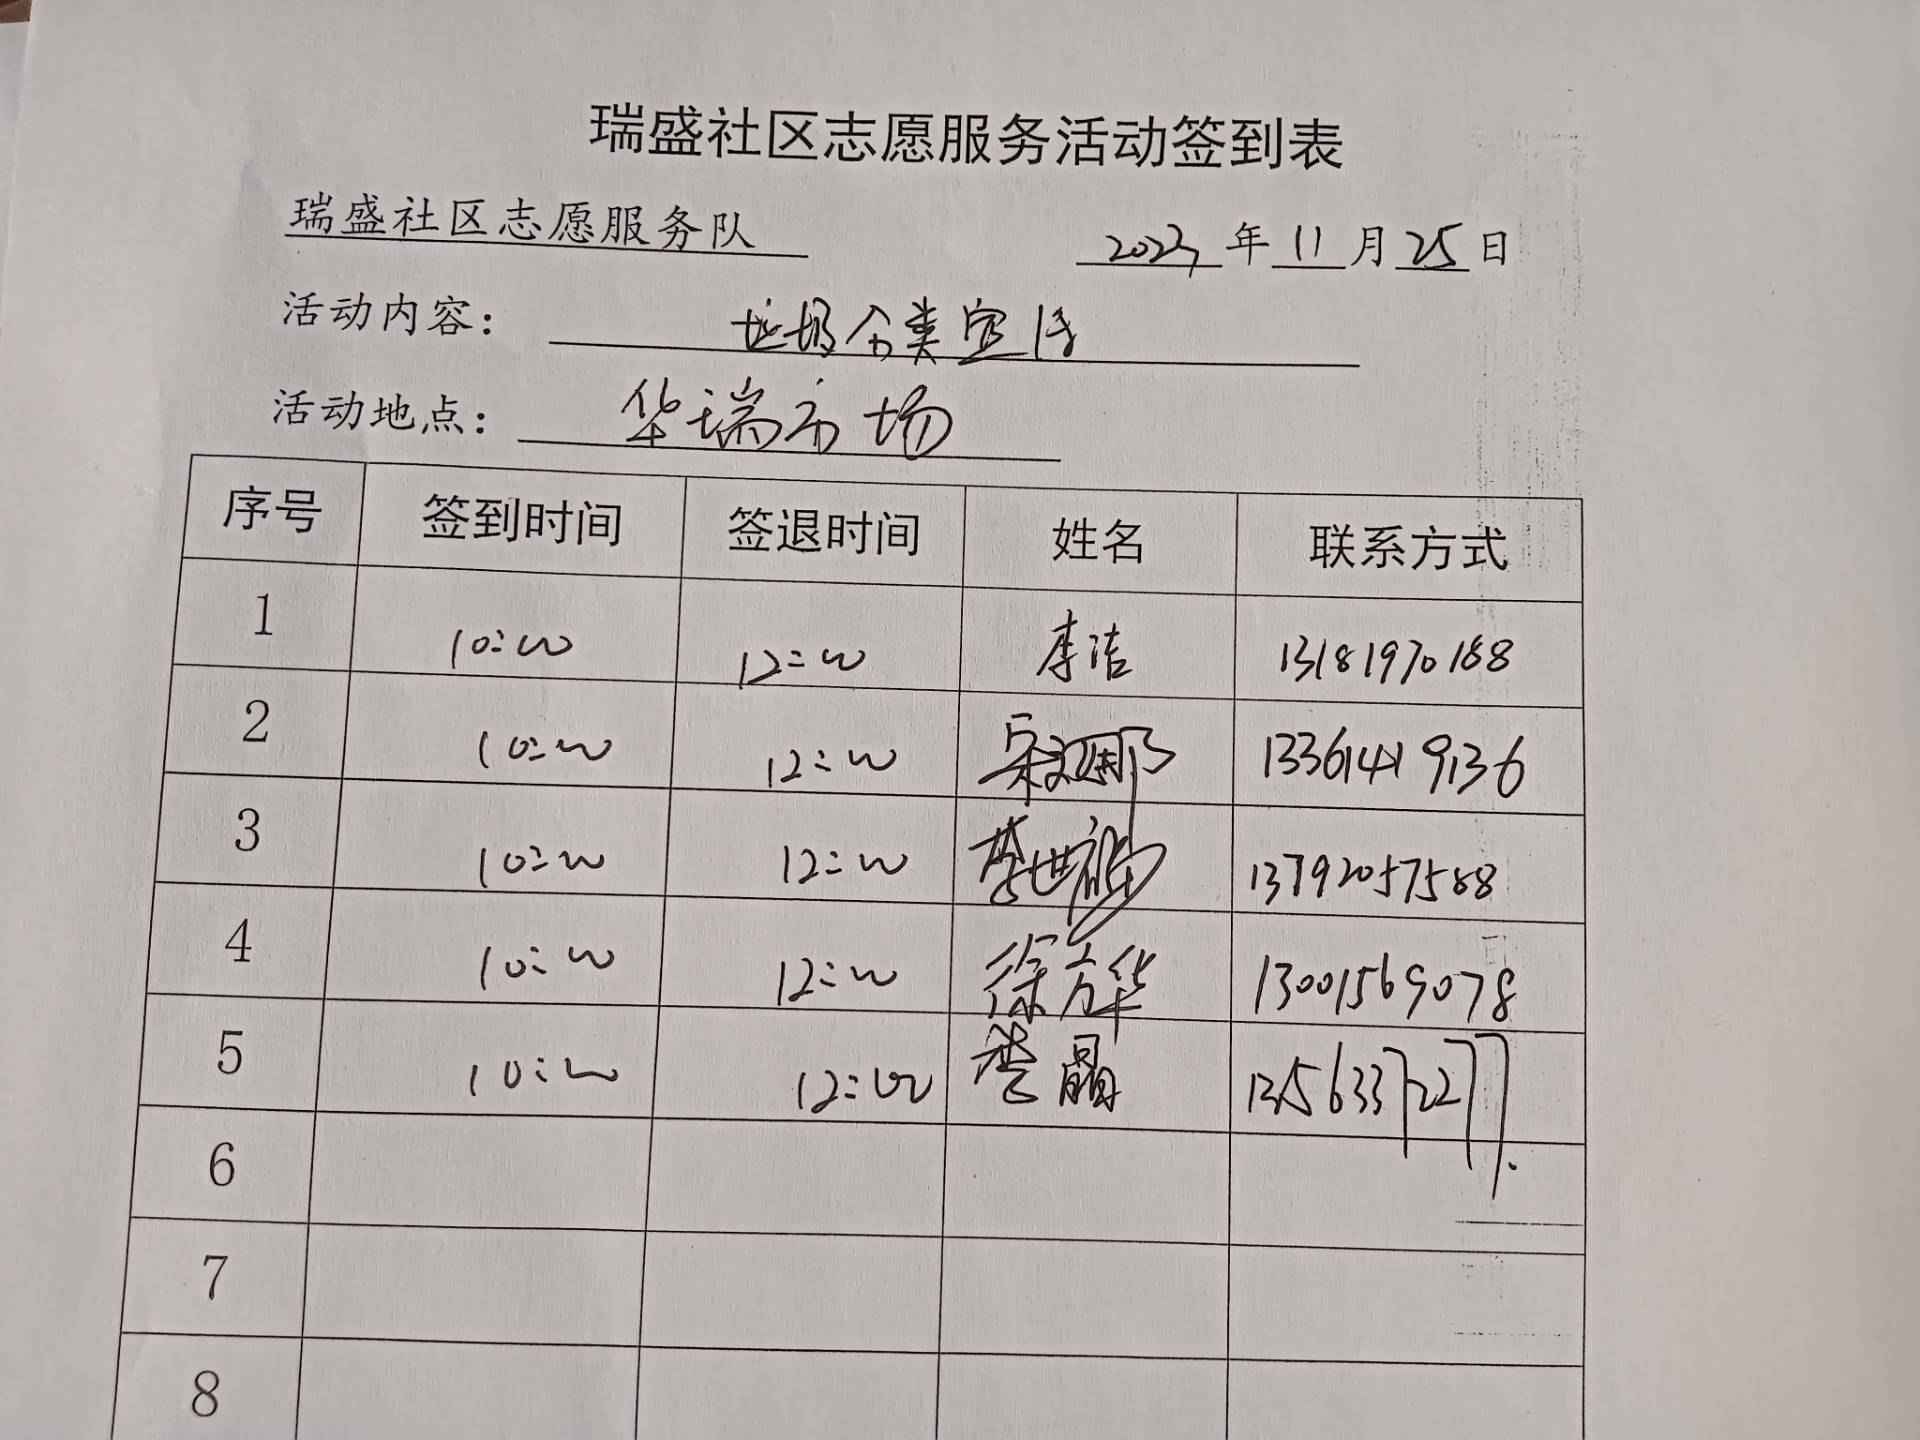 瑞盛社区志愿服务活动签到表
瑞盛社区志愿服务队 2023年11月25日
活动内容: 垃圾分类宣传
活动地点: 华瑞市场
序号 签到时间 签退时间 姓名 联系方式
1 10:00 12:00 李洁 13181970188
2 10:00 12:00 13361419136
3 10:00 12:00 李世福 13792057588
4 10:00 12:00 徐方华 13001569078
5 10:00 12:00 娄晶
6
7
8